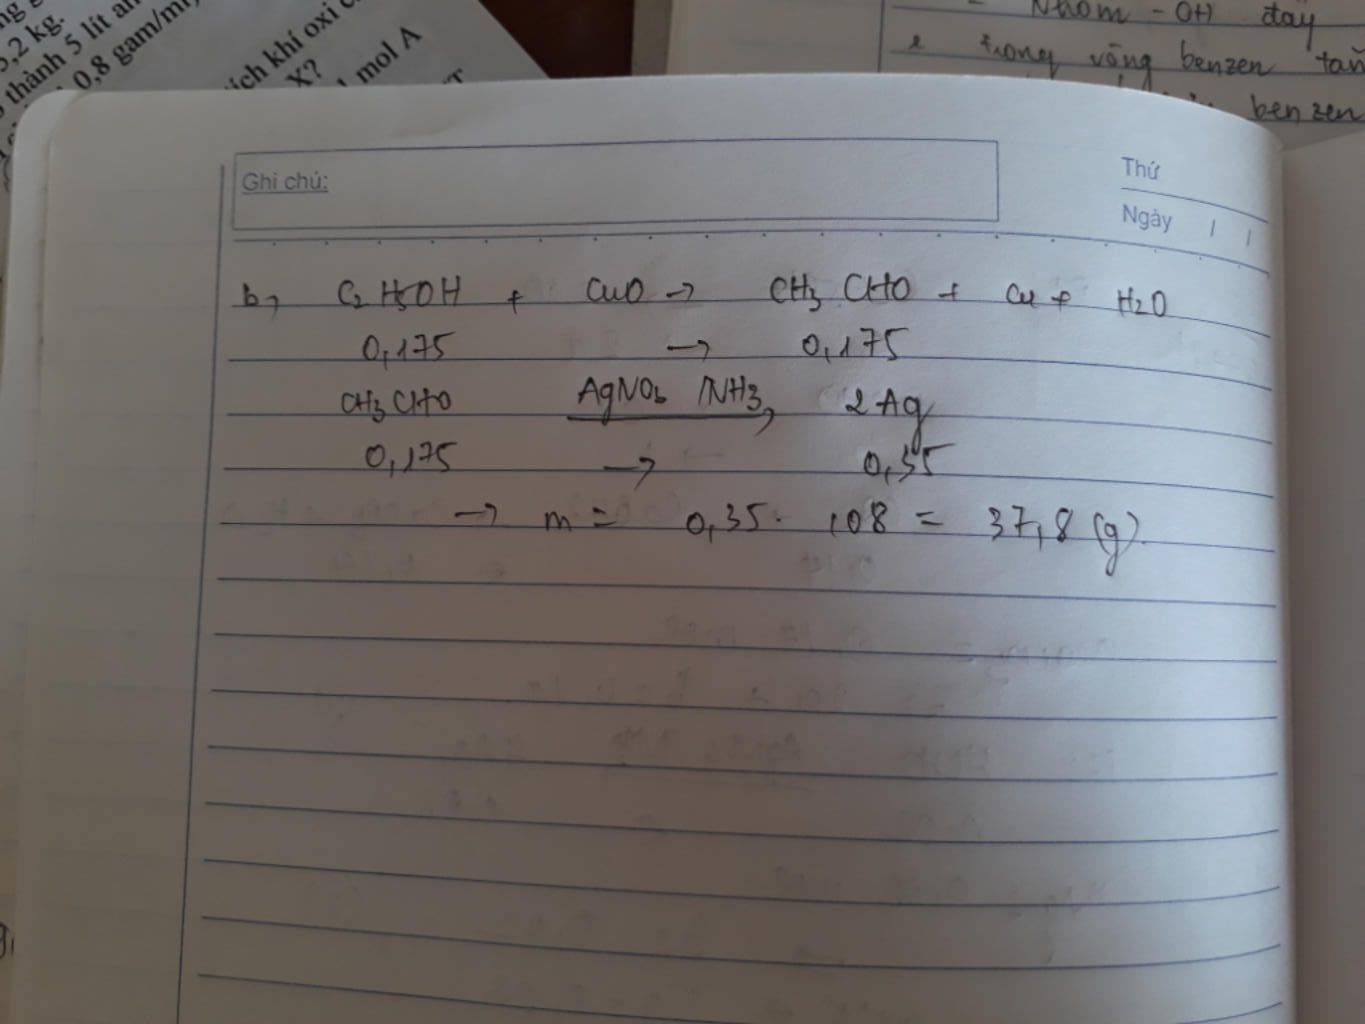 5,2 kg.
thành 5 lít
0,8 gam/ml,
ích khí oxi
X?
1 mol A
Nhóm - OH đẩy
e trong vòng benzen
benzen
Ghi chú:
Thứ
Ngày / /
b, C2H5OH + CuO → CH3CHO + Cu + H2O
0,175 → 0,175
CH3CHO AgNO3/NH3 → 2Ag
0,175 → 0,35
→ m = 0,35. 108 = 37,8 (g).